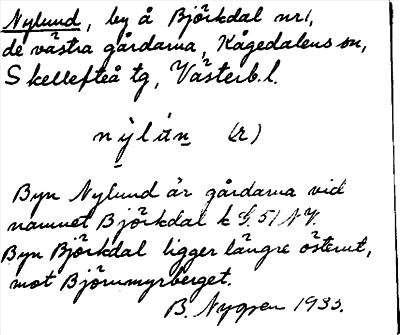 Nylund, by å Björkdal nr 1,
de västra gårdarna, Kågedalens sn,
Skellefteå tg, Västerb. l.
nýlún (r)
Byn Nylund är gårdarna vid
namnet Björkdal k bl. 51 NV.
Byn Björkdal ligger längre österut,
mot Björnmyrberget.
B. Nygren 1935.